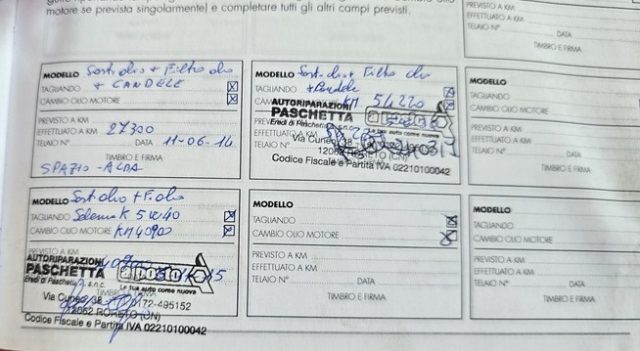 motore se prevista singolarmente) e completare tutti gli altri campi previsti.
PREVISTO A KM
EFFETTUATO A KM
TELAIO N° DATA
TIMBRO E FIRMA
MODELLO Sost olio + Filtro olio
+ CANDELE
TAGLIANDO
CAMBIO OLIO MOTORE
PREVISTO A KM
EFFETTUATO A KM 27300
TELAIO N° DATA 11-06-14
TIMBRO E FIRMA
SPAZIO-ALBA
MODELLO Sost olio + Filtro olio
TAGLIANDO
CAMBIO OLIO MOTORE KM 54220
AUTORIPARAZIONI
PASCHETTA
a posto
Eredi di Paschetta s.n.c.
Le tua auto come nuova
Via Cuneo
(CN)
Codice Fiscale e Partita IVA 02210100042
MODELLO
TAGLIANDO
CAMBIO OLIO MOTORE
PREVISTO A KM
EFFETTUATO A KM
TELAIO N°
MODELLO Sost olio + F olio
TAGLIANDO Selenia K 5W40
CAMBIO OLIO MOTORE KM 40900
PREVISTO A KM
AUTORIPARAZIONI
PASCHETTA
a posto
Eredi di Paschetta s.n.c.
La tua auto come nuova
Via Cuneo, 38 0172-495152
12062 (CN)
Codice Fiscale e Partita IVA 02210100042
MODELLO
TAGLIANDO
CAMBIO OLIO MOTORE
PREVISTO A KM
EFFETTUATO A KM
TELAIO N° DATA
TIMBRO E FIRMA
MODELLO
TAGLIANDO
CAMBIO OLIO MOTORE
PREVISTO A KM
EFFETTUATO A KM
TELAIO N°